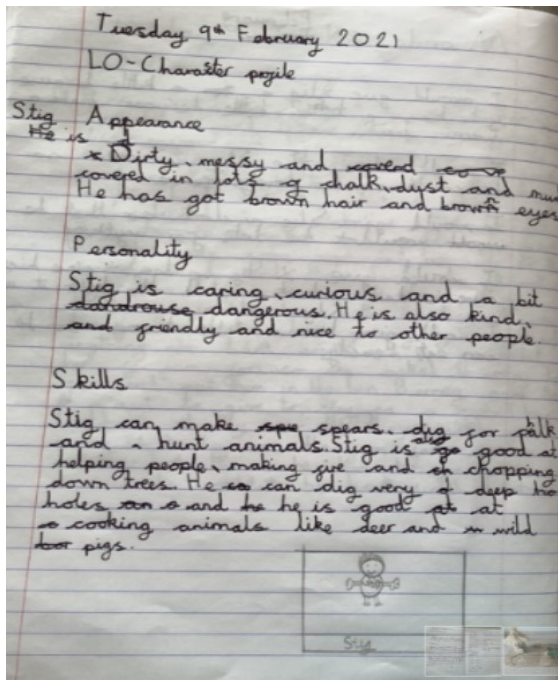 Tuesday 9th February 2021
LO-Character profile
Appearance
Stig
He is d
x Dirty, messy and coverd
covered in lots of chalk, dust and mu
He has got brown hair and brown eyes
Personality
Stig is caring, curious and a bit
dandrouse dangerous. He is also kind,
and friendly and nice to other people.
Skills
Stig can make spu spears. dig for
and hunt animals. Stig is also go good at
helping people, making fire and ch chopping
down trees. He ca can dig very d deep ho
holes an a and he he is good at at
cooking animals like deer and w wild
bor pigs.
Stig